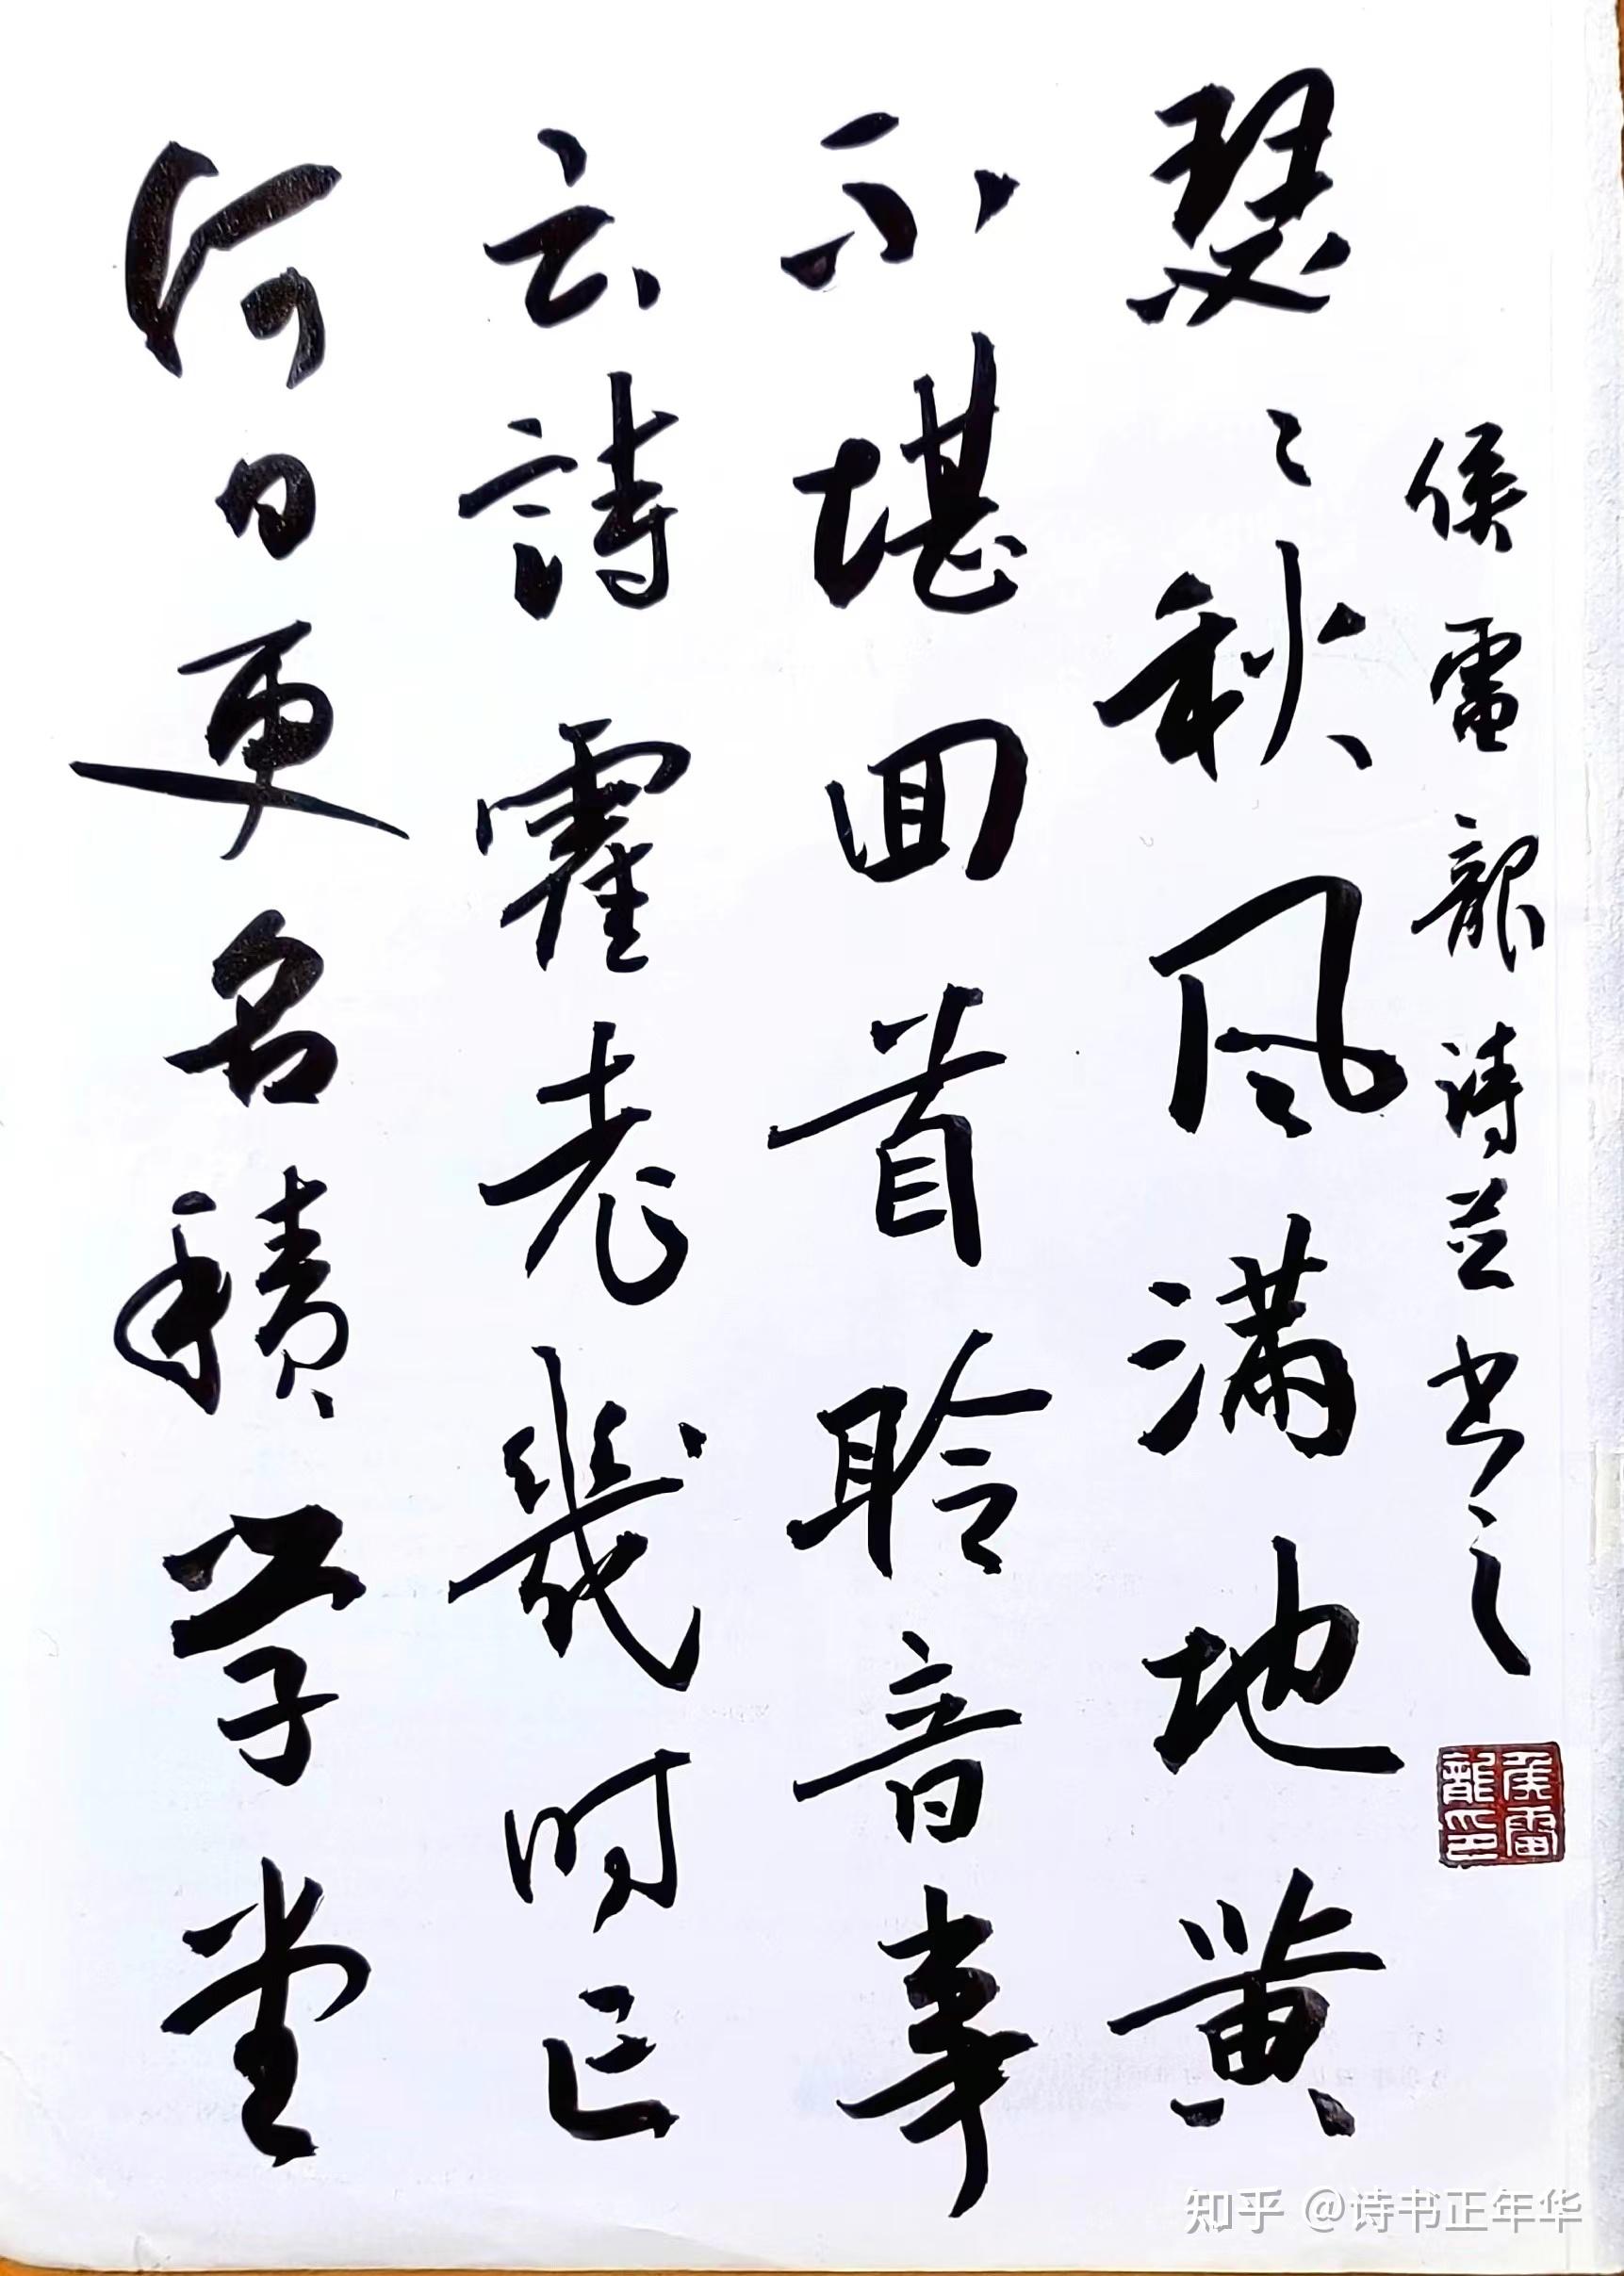 侯雷龍诗並书之
瑟〻秋风满地黄
不堪囬首聆音事
云詩霍老幾时
何日更名積学堂
侯雷
龍印
知乎 @诗书正年华